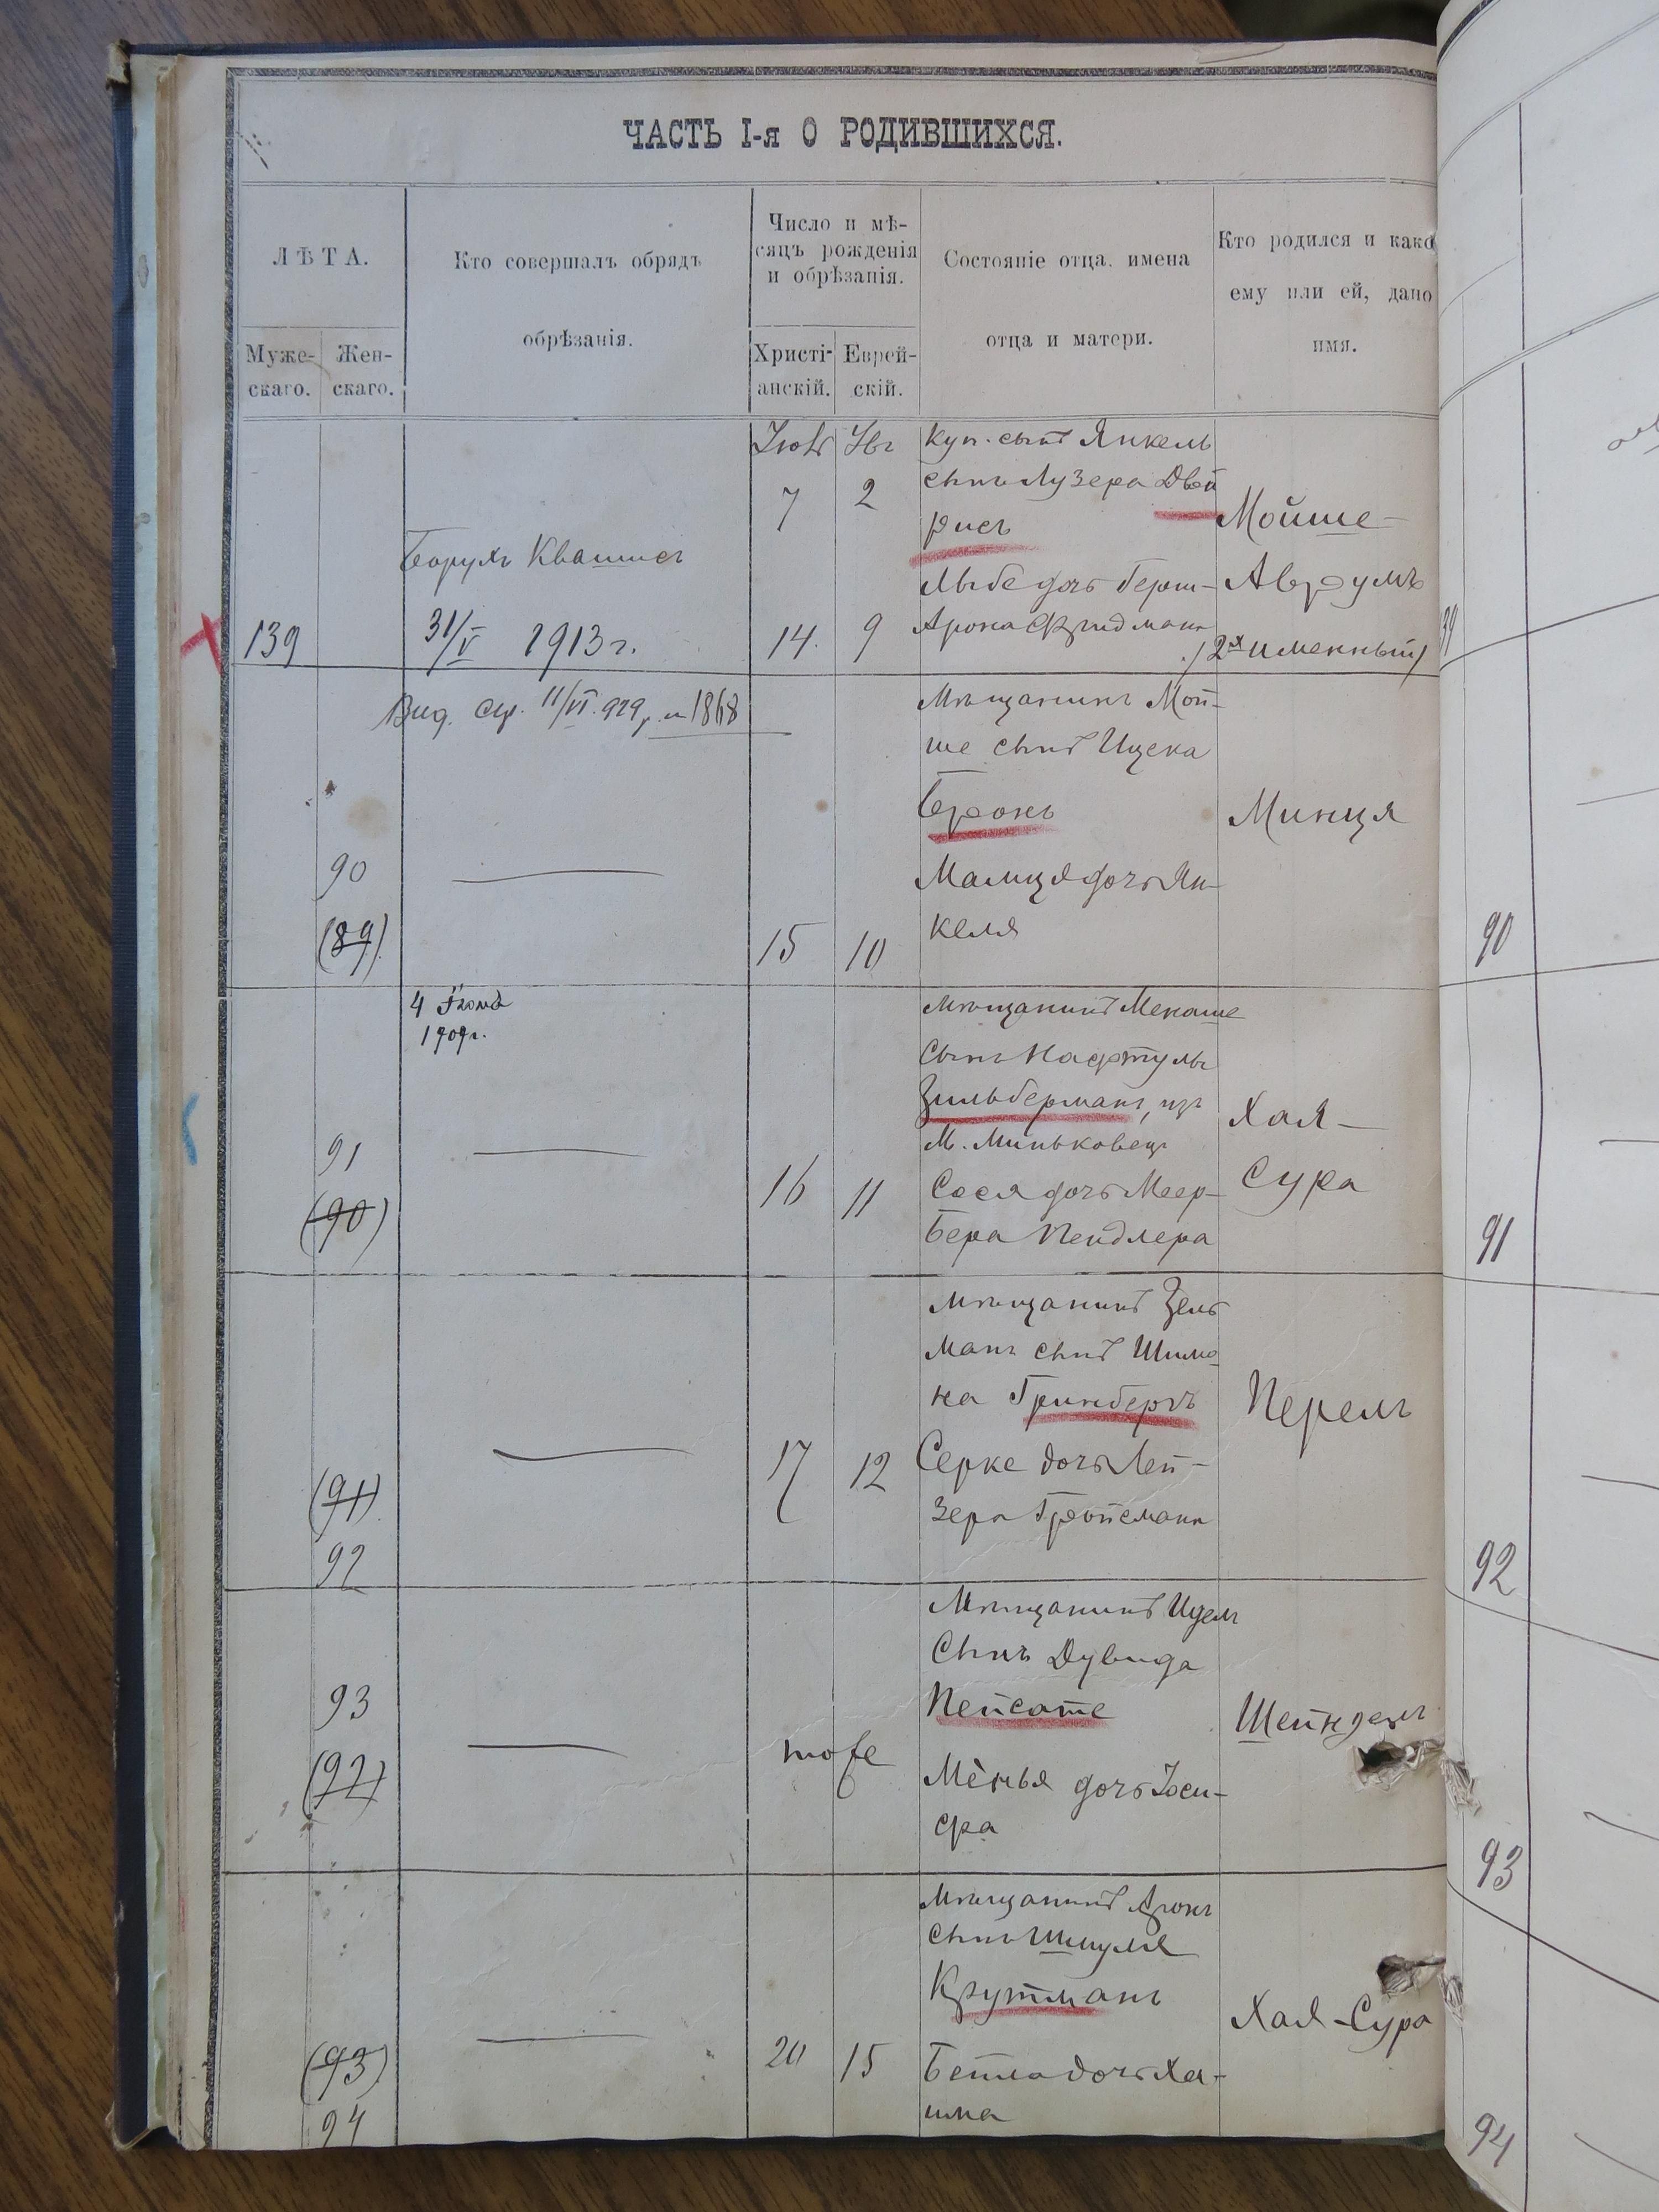 ЧАСТЬ I-я О РОДИВШИХСЯ.
ЛѢТА.
Муже-
скаго.
Жен-
скаго.
Кто совершалъ обрядъ
обрѣзанія.
Число и мѣ-
сяцъ рожденія
и обрѣзанія.
Христі-
анскій.
Еврей-
скій.
Состояніе отца, имена
отца и матери.
Кто родился и како
ему или ей, дано
имя.
139
Борухъ Квашисъ
31/V 1913 г.
7
14.
2
9
Куп. сынъ Янкель
сынъ Лузера Двой
рисъ
дочь Герш-
Арона Фридманъ
Мойше-
Аврумъ
/2хъ именный/
90
(89)
11/VI 929 1868
15
10
Мѣщанинъ Мой-
ше сынъ Ицека
Бронъ
Малця дочь Ян-
келя
Минця
90
91
(90)
4 Іюня
1909г.
16
11
Мѣщанинъ Менаше
сынъ Нафтулы
Зильберманъ, изъ
м. Миньковецъ
Сося дочь Меер-
Бера Пендлера
Хая-
Сура
91
(91)
92
17
12
Мѣщанинъ Зель
манъ сынъ Шимо-
на Гринбергъ
Серке дочь Лей-
зера Гройсмана
Перель
92
93
(92)
тоже
Мѣщанинъ Ицель
сынъ Дувида
Пейсате
Менья дочь Іоси-
фа
Шейндель
93
(93)
94
20
15
Мѣщанинъ Аронъ
сынъ Шмуля
Крутманъ
Бейла дочь Ха-
има
Хая-Сура
94